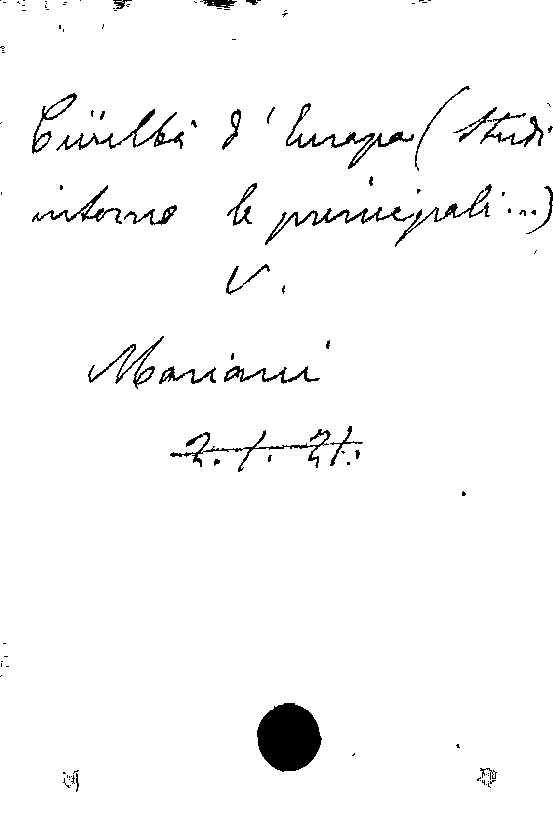 Civiltà d'Europa (Studi
intorno le principali...)
V.
Mariani
2. 1. 21.